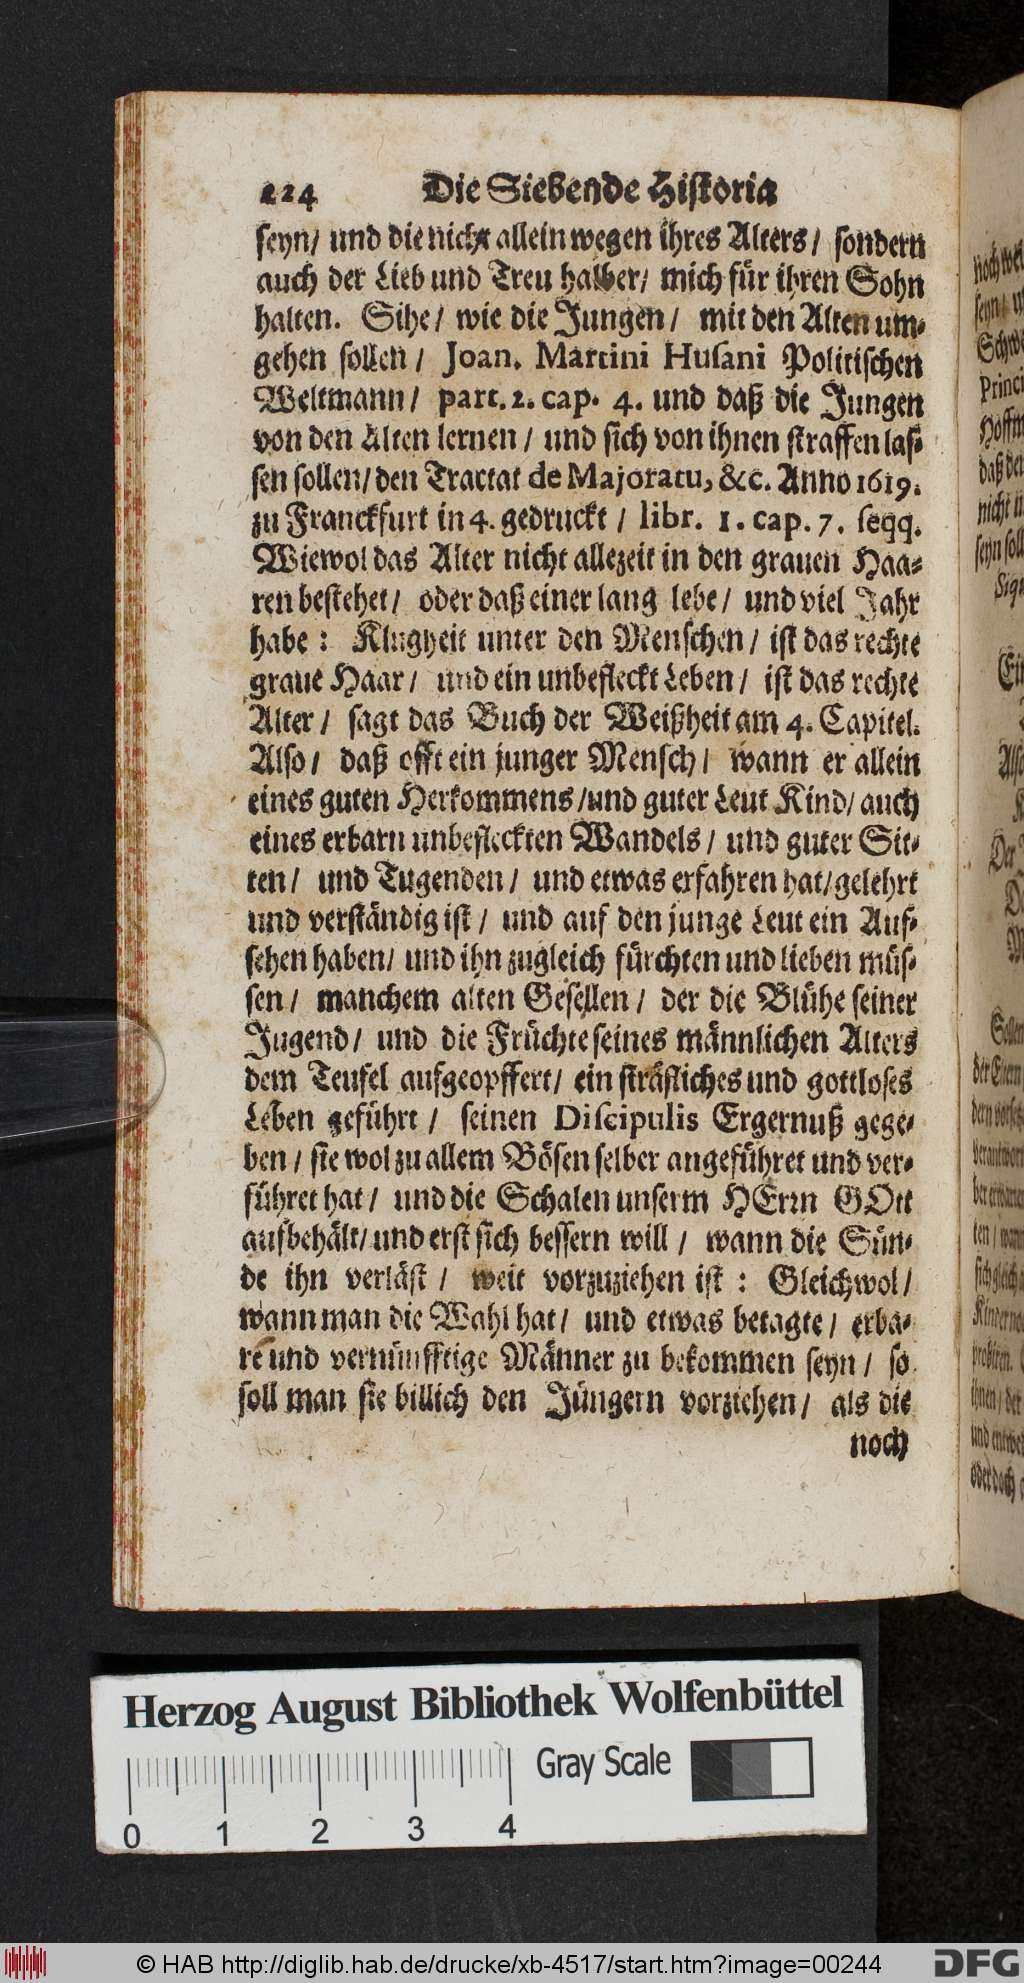 224 Die Siebende Historia
seyn/ und die nicht allein wegen ihres Alters/ sondern
auch der Lieb und Treu halber/ mich für ihren Sohn
halten. Sihe/ wie die Jungen/ mit den Alten um-
gehen sollen/ Joan. Martini Husani Politischen
Weltmann/ part. 2. cap. 4. und daß die Jungen
von den Alten lernen/ und sich von ihnen straffen las-
sen sollen/ den Tractat de Majoratu, &c. Anno 1619.
zu Franckfurt in 4. gedruckt/ libr. 1. cap. 7. seqq.
Wiewol das Alter nicht allezeit in den grauen Haa-
ren bestehet/ oder daß einer lang lebe/ und viel Jahr
habe: Klugheit unter den Menschen/ ist das rechte
graue Haar/ und ein unbefleckt Leben/ ist das rechte
Alter/ sagt das Buch der Weißheit am 4. Capitel.
Also/ daß offt ein junger Mensch/ wann er allein
eines guten Herkommens/ und guter Leut Kind/ auch
eines erbarn unbefleckten Wandels/ und guter Sit-
ten/ und Tugenden/ und etwas erfahren hat/ gelehrt
und verständig ist/ und auf den junge Leut ein Auf-
sehen haben/ und ihn zugleich fürchten und lieben müs-
sen/ manchem alten Gesellen/ der die Blühe seiner
Jugend/ und die Früchte seines männlichen Alters
dem Teufel aufgeopffert/ ein sträfliches und gottloses
Leben geführt/ seinen Discipulis Ergernuß gege-
ben/ sie wol zu allem Bösen selber angeführet und ver-
führet hat/ und die Schalen unserm HErrn GOtt
aufbehält/ und erst sich bessern will/ wann die Sün-
de ihn verläst/ weit vorzuziehen ist: Gleichwol/
wann man die Wahl hat/ und etwas betagte/ erba-
re und vernünfftige Männer zu bekommen seyn/ so
soll man sie billich den Jüngern vorziehen/ als die
noch
Herzog August Bibliothek Wolfenbüttel
Gray Scale
0 1 2 3 4
© HAB http://diglib.hab.de/drucke/xb-4517/start.htm?image=00244
DFG